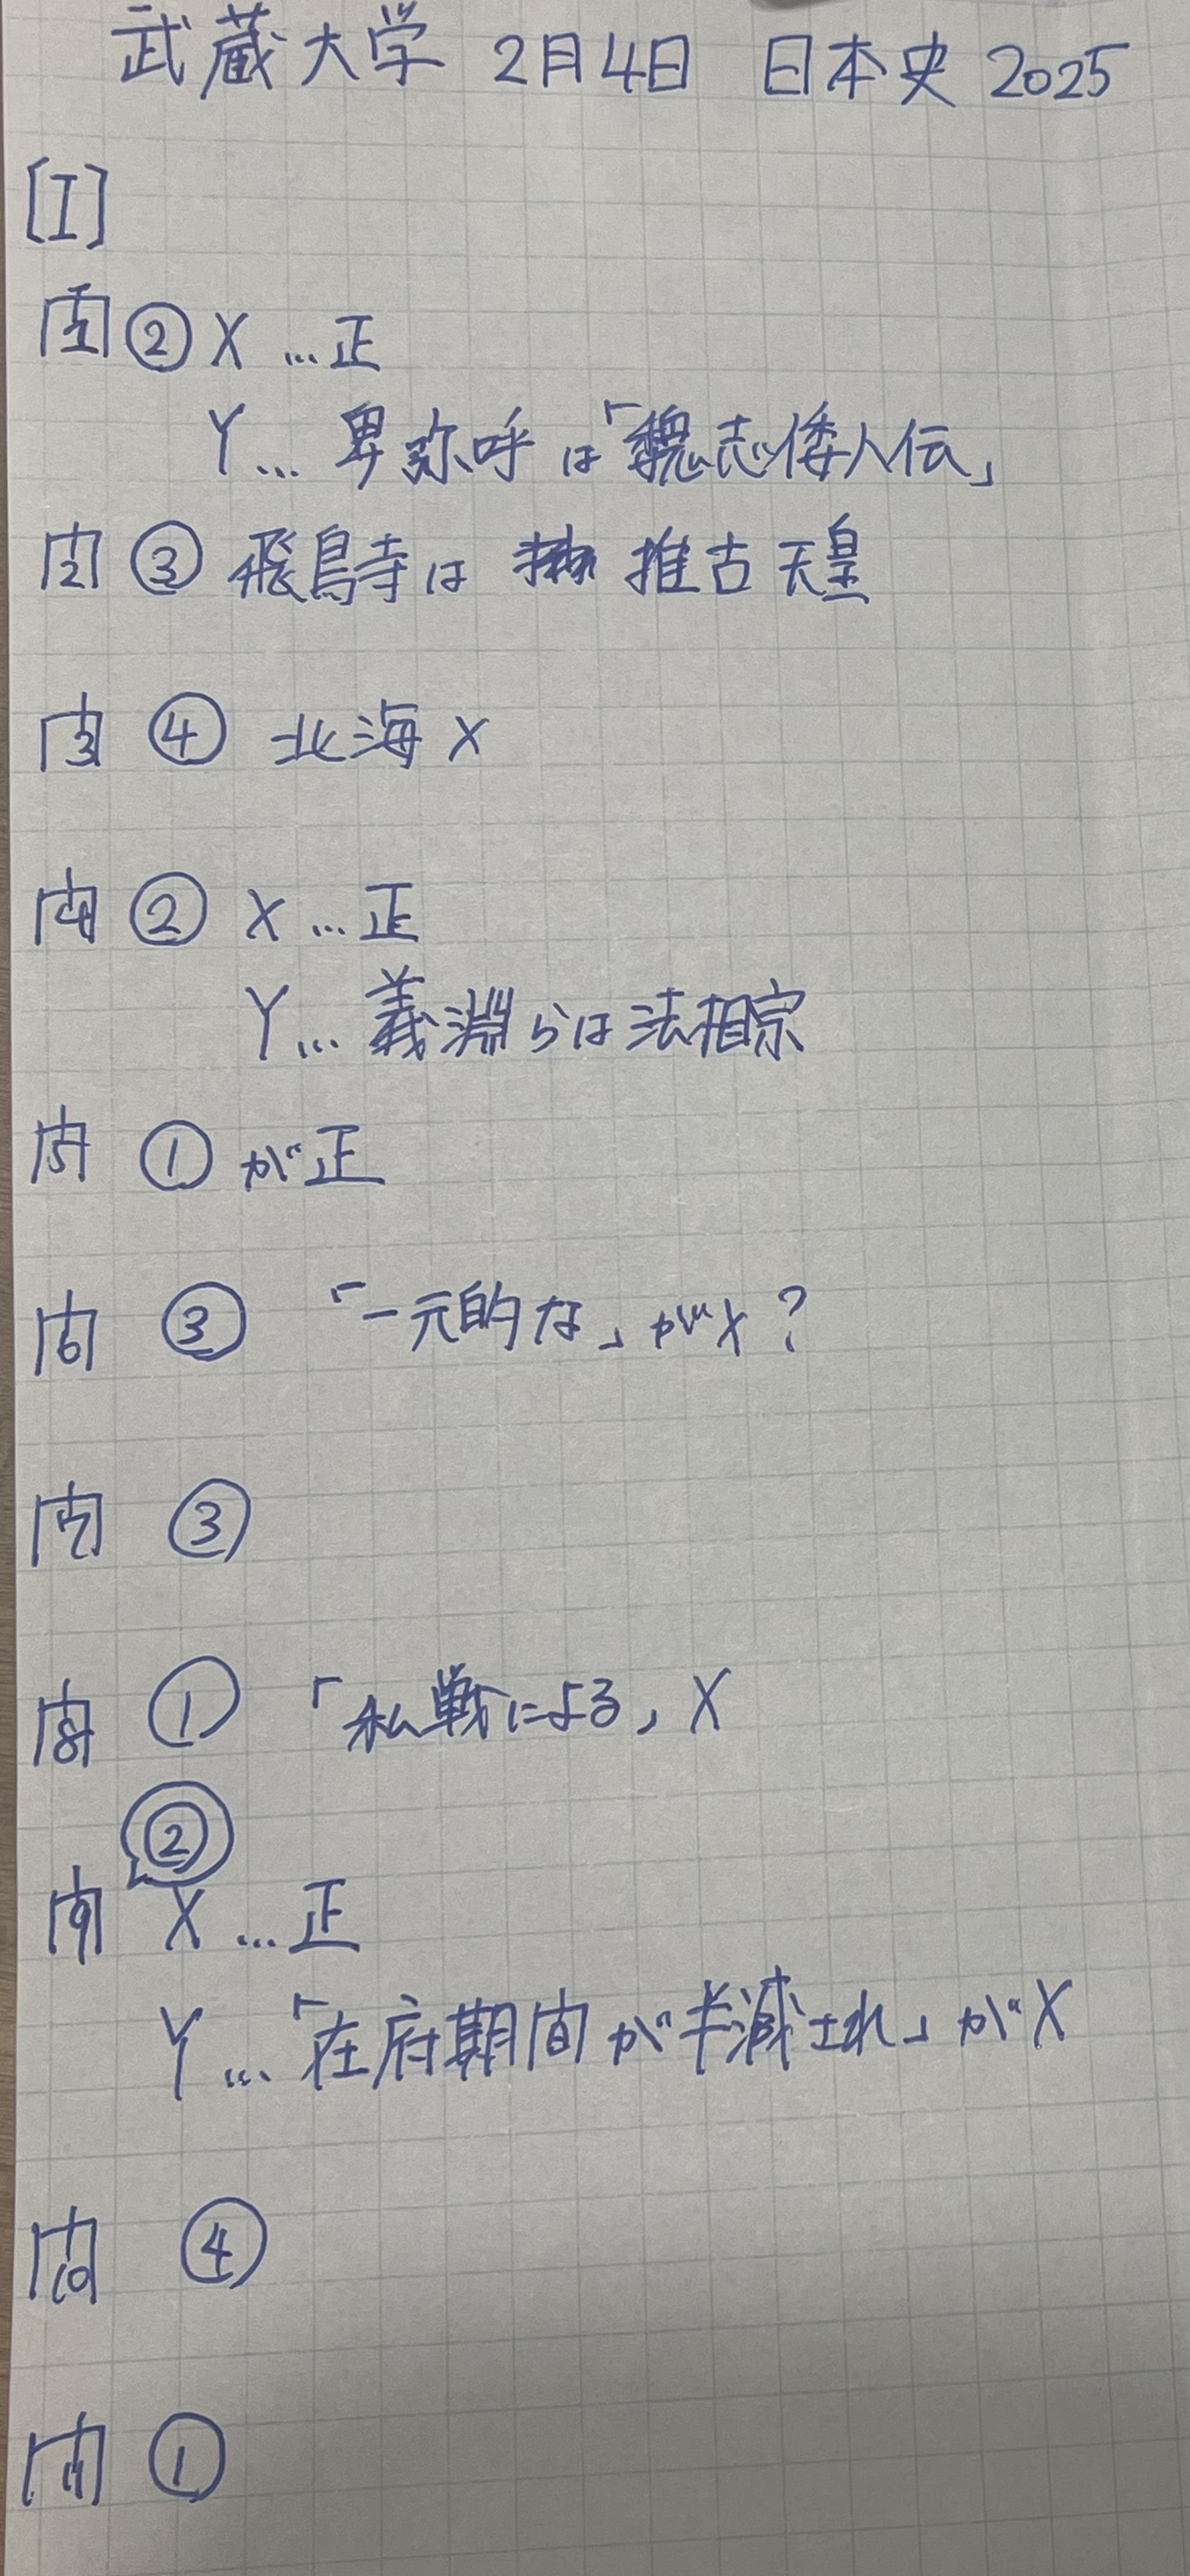 武蔵大学 2月4日 日本史 2025
[I]
問1 ② X…正
Y…卑弥呼は「魏志倭人伝」
問2 ③ 飛鳥寺は 推古天皇
問3 ④ 北海X
問4 ② X…正
Y…義淵らは法相宗
問5 ① が正
問6 ③ 「一元的な」がX?
問7 ③
問8 ① 「私戦による」X
②
問9 X…正
Y…「在府期間が半減され」がX
問10 ④
問11 ①